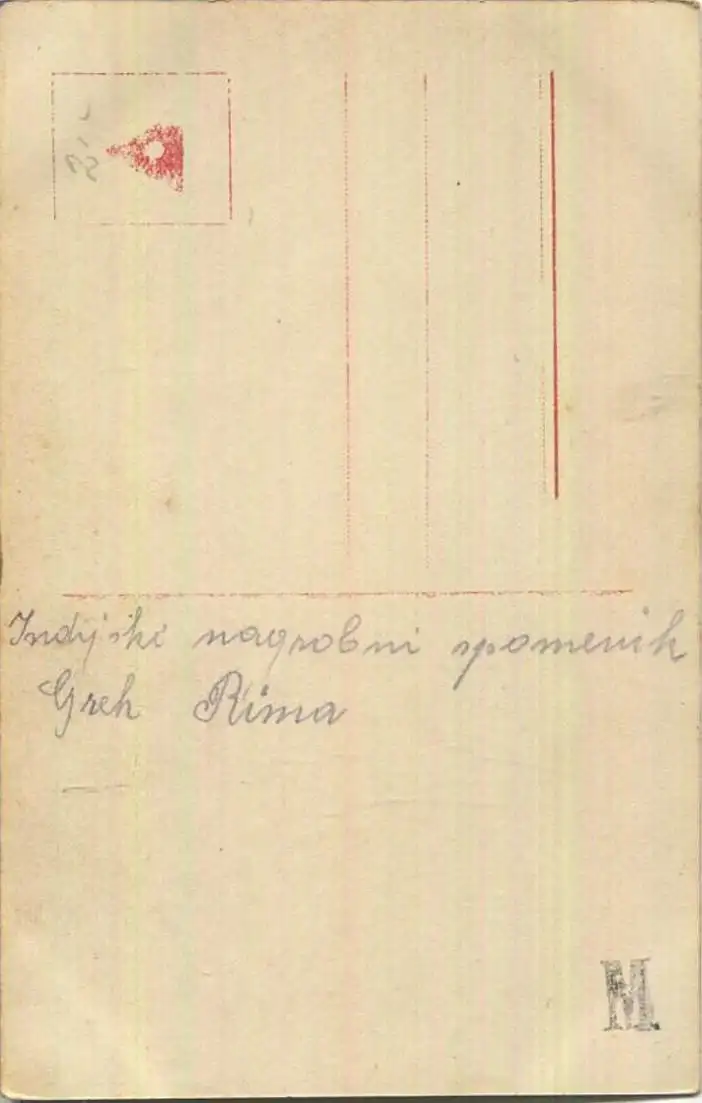 Indijski nagrobni spomenik
Greh Rima
M